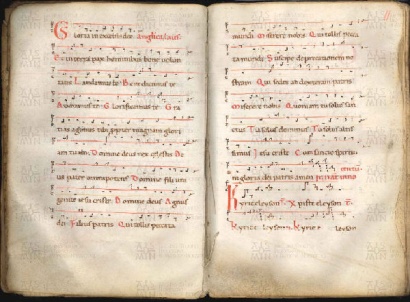 Gloria in excelsis deo
Et in terra pax hominibus bone volun
tatis Laudamus te Benedicimus te
Adoramus te Glorificamus te Gra
tias agimus tibi propter magnam glori
am tuam Domine deus rex celestis De
us pater omnipotens Domine fili uni
genite iesu christe Domine deus Agnus
dei Filius patris Qui tollis peccata
mundi Miserere nobis Qui tollis pecca
ta mundi Suscipe deprecationem no
stram Qui sedes ad dexteram patris
Miserere nobis Quoniam tu solus san
ctus Tu solus dominus Tu solus altis
simus Iesu christe Cum sancto spiritu
in gloria dei patris amen
Kyrie eleyson Xpiste eleyson
Kyrie leyson Kyrie leyson